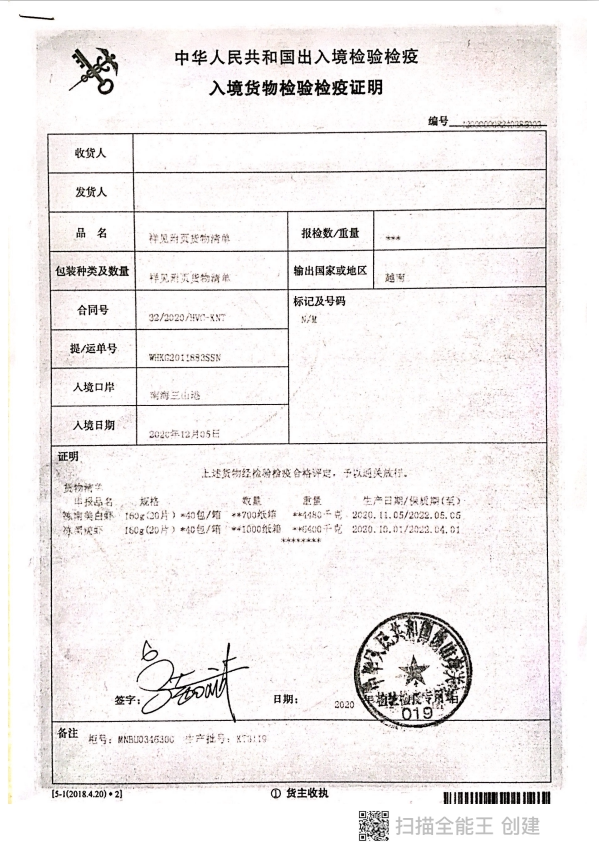 中华人民共和国出入境检验检疫
入境货物检验检疫证明
编号
收货人
发货人
品 名 详见附页货物清单 报检数/重量 ***
包装种类及数量 详见附页货物清单 输出国家或地区 越南
合同号 32/2020/HVC-KNT 标记及号码
N/M
提/运单号 WHKG2011883SSN
入境口岸 南海三山港
入境日期 2020年12月05日
证明
上述货物经检验检疫合格评定，予以通关放样。
货物清单
申报品名 规格 数量 重量 生产日期/保质期(至)
冻南美白虾 160g(20片)*40包/箱 **700纸箱 **4480千克 2020.11.05/2022.05.05
160g(20片)*40包/箱 **1000纸箱 **6400千克 2020.10.01/2022.04.01
********
签字：
日期： 2020
中华人民共和国佛山海关
检验检疫专用章
019
备注
柜号：MNBU0346300 生产批号：
[5-1(2018.4.20)*2]
① 货主收执
扫描全能王 创建